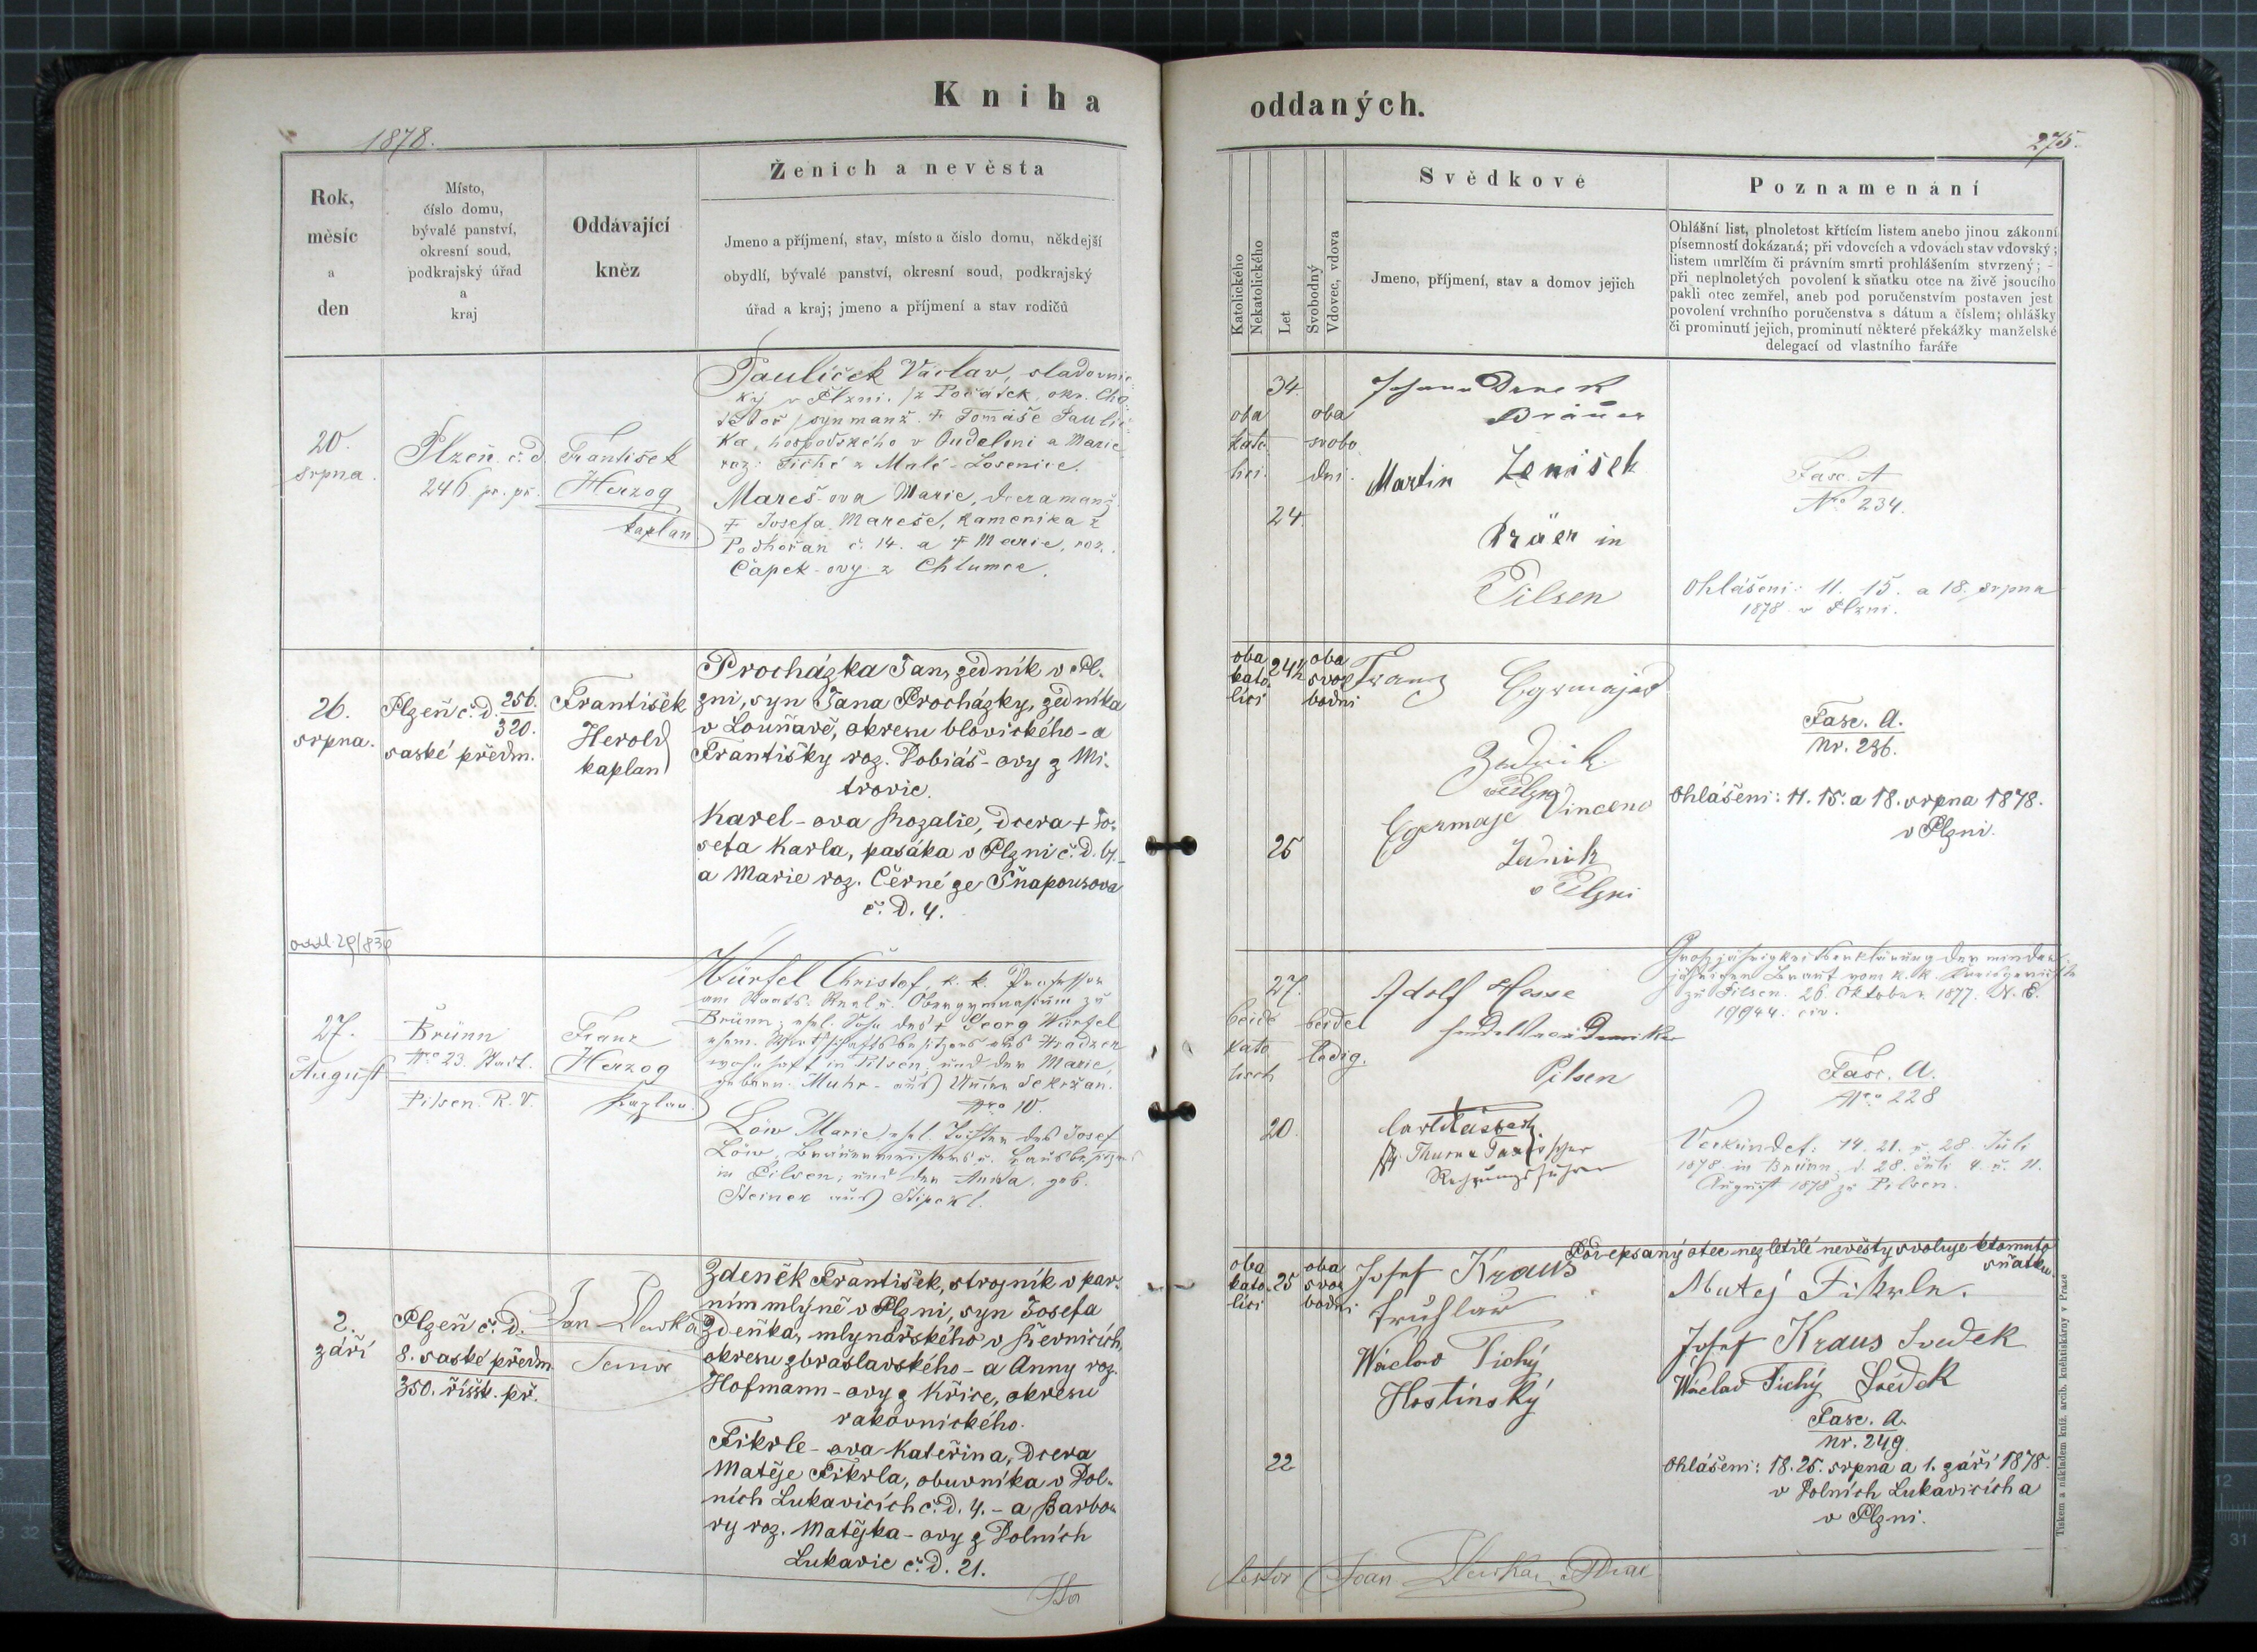 Kniha
oddaných.
1878.
275.
Rok,
měsíc
a
den
Místo,
číslo domu,
bývalé panství,
okresní soud,
podkrajský úřad
a
kraj
Oddávající
kněz
Ženich a nevěsta
Jmeno a příjmení, stav, místo a číslo domu, někdejší
obydlí, bývalé panství, okresní soud, podkrajský
úřad a kraj; jmeno a příjmení a stav rodičů
Katolického
Nekatolického
Let
Svobodný
Vdovec, vdova
Svědkové
Jmeno, příjmení, stav a domov jejich
Poznamenání
Ohlášní list, plnoletost křtícím listem anebo jinou zákonní
písemností dokázaná; při vdovcích a vdovách stav vdovský;
listem umrlčím či právním smrti prohlášením stvrzený; -
při neplnoletých povolení k sňatku otce na živě jsoucího
pakli otec zemřel, aneb pod poručenstvím postaven jest
povolení vrchního poručenstva s dátum a číslem; ohlášky
či prominutí jejich, prominutí některé překážky manželské
delegací od vlastního faráře
20.
srpna.
Plzeň č. d.
246 pr. př.
František
Herzog
kaplan
Paulíček Václav, sladovnic-
ký v Plzni. /z Počátek, okr. Cho-
těboř/ syn manž. † Tomáše Paulíč-
ka, hospodského v Oudoleni a Marie
roz. Tiché z Malé Losenice.
Mareš-ova Marie, dcera manž.
† Josefa Mareše, kameníka z
Podhořan č. 14. a † Marie, roz.
Čapek-ovy z Chlumce.
34.
oba
kato
lící.
oba
svobo
dni.
24.
Johann
Bräuer
Martin Zenisek
Bräer in
Pilsen
Fasc. A
Nro 234.
Ohlášeni: 11. 15. a 18. srpna
1878 v Plzni.
26.
srpna.
Plzeň č. d. 256.
320.
saské předm.
František
Herold
kaplan
Procházka Jan, zedník v Pl-
zni, syn Jana Procházky, zedníka
v Louňavě, okresu blovického - a
Františky roz. Tobiáš-ovy z Mi-
trovic.
Karel-ova Rozalie, dcera † Jo-
sefa Karla, pasáka v Plzni č. d. 64. -
a Marie roz. Černé ze Šňapousova
č. d. 4.
oba
kato-
lící
24½
oba
svo-
bodni
25
Franz
Egrmajer
Zednik
v Plzni
Egermaje Vincenc
Zednik
v Plzni
Fasc. A.
Nr. 236.
Ohlášeni: 11. 15. a 18. srpna 1878.
v Plzni.
27.
August
Brünn
Nro 23. Stadt.
Pilsen. R. V.
Franz
Herzog
Kaplan
Würfel Christof, k. k. Professor
am Staats-Real u. Obergymnasium zu
Brünn, ehel. Sohn des † Georg Würfel
ehem. Wirthschaftsbesitzers aus Hradzen
wohnhaft in Pilsen, und der Marie,
geboren. Muhr - aus Unter Sekržan.
Nro 10.
Löw Marie, ehel. Tochter des Josef
Löw, Bräuermeisters u. Hausbesitzers
in Pilsen, und der Anna, geb.
Steiner aus
27.
beide
kato
lisch
beide
ledig.
20.
Adolf Hasse
Pilsen
Thurn u Taxis'scher
Rechnungsführer
Grossjährigkeitserklärung der minder-
jährigen Braut vom k. k. Kreisgerichte
zu Pilsen. 26. Oktober. 1877. N. E.
19944. civ.
Fasc. A.
Nro 228
Verkündet: 14. 21. u. 28. Juli
1878 in Brünn, d. 28. Juli 4. u. 11.
August 1878 zu Pilsen.
2.
září
Plzeň č. d.
8. saské předm.
350. říšsk. př.
Jan
Zdeněk František, strojník v par-
ním mlýně v Plzni, syn Josefa
Zdeňka, mlynářského v Řevnicích,
okresu zbraslavského - a Anny roz.
Hofmann-ovy z Křice, okresu
rakovnického.
Fikrle-ova Kateřina, dcera
Matěje Fikrla, obuvníka v Dol-
ních Lukavicích č. d. 4. - a Barbo-
ry roz. Matějka-ovy z Dolních
Lukavic č. d. 21.
oba
kato-
lící
25
oba
svo-
bodni
22
Josef Kraus
truhlař
Wáclav Tichý
Hostinský
Podepsaný otec nezletilé nevěsty svoluje k tomuto
sňatku.
Matej Fikrle.
Josef Kraus Svedek
Wáclav Tichý Svědek
Fasc. A.
Nr. 249.
Ohlášeni: 18. 25. srpna a 1. září 1878.
v Dolních Lukavicích a
v Plzni.
Tiskem a nákladem kniž. arcib. knihtiskárny v Praze